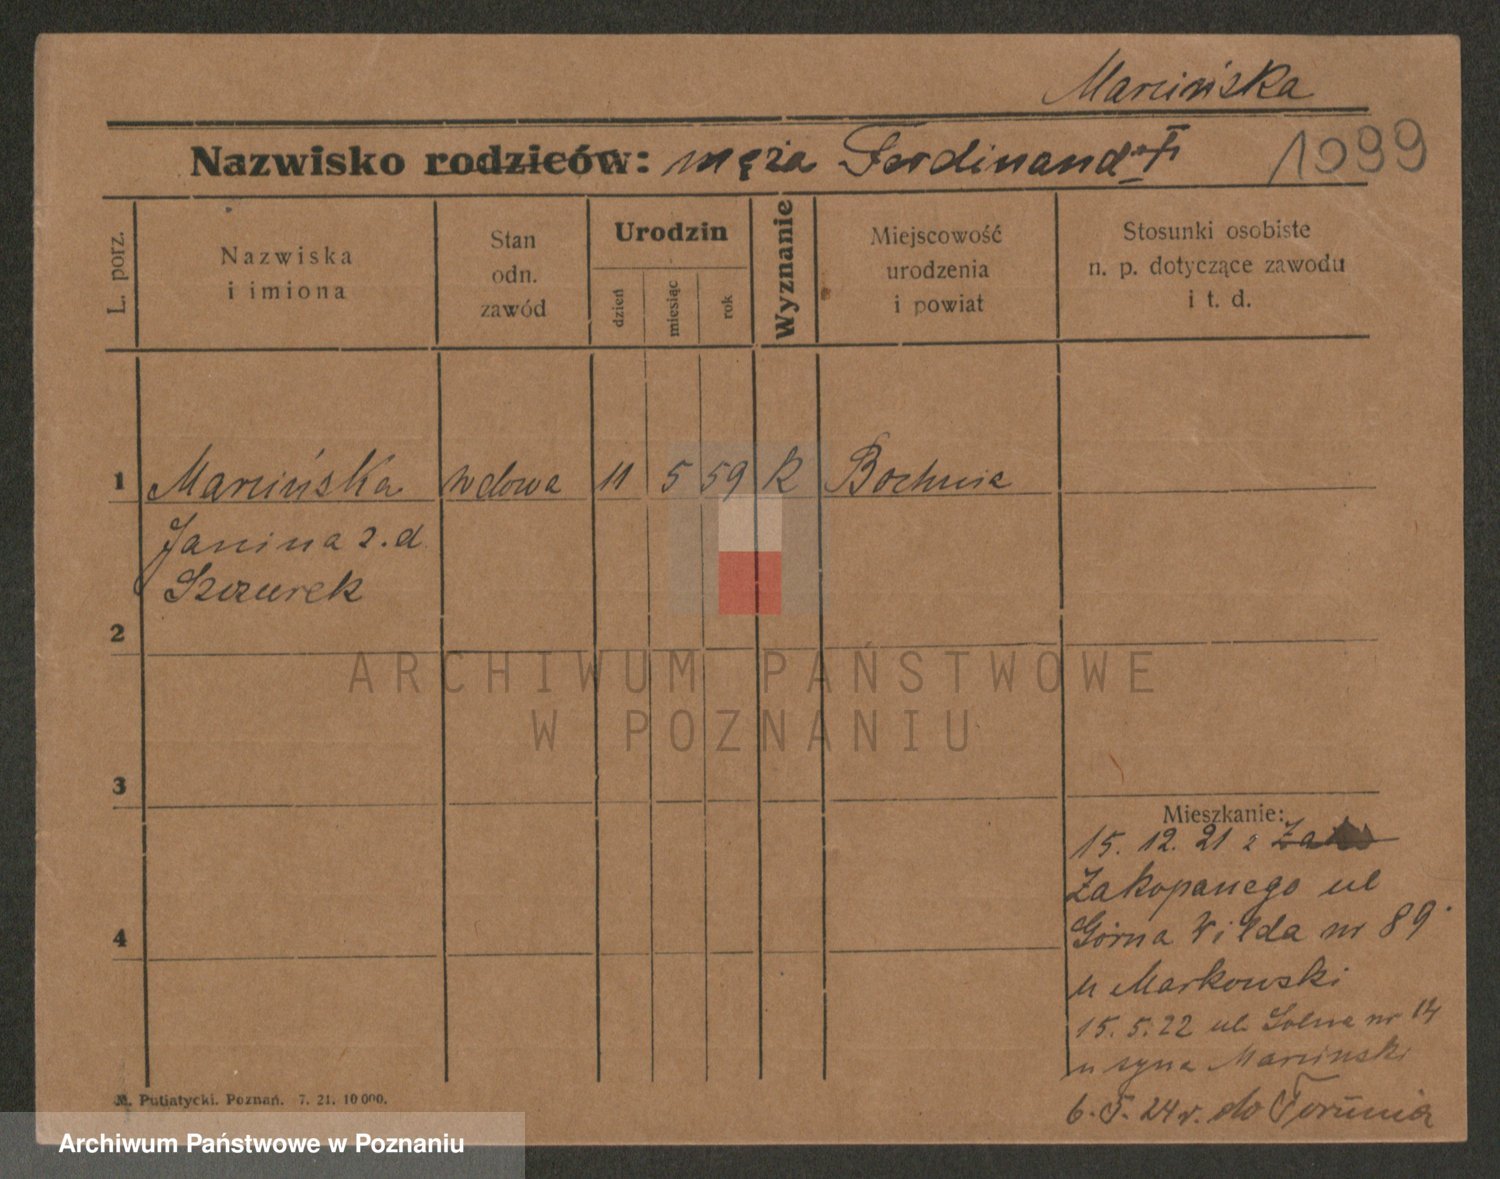 Marcińska
Nazwisko rodziców: męża Ferdinand
1099
L. porz.
Nazwiska
i imiona
Stan
odn.
zawód
Urodzin
dzień
miesiąc
rok
Wyznanie
Miejscowość
urodzenia
i powiat
Stosunki osobiste
n. p. dotyczące zawodu
i t. d.
1 Marcińska wdowa 11 5 59 R Bochnia
Janina z. d
Szczurek
2
ARCHIWUM PAŃSTWOWE
W POZNANIU
3
Mieszkanie:
15. 12. 21 z
Zakopanego ul
4 Górna Wilda nr 89
u Markowski
15. 5. 22 ul. Solna nr 14
u syna Marcinski
6. 5. 24 r. do Torunia
M. Putiatycki. Poznań. 7. 21. 10 000.
Archiwum Państwowe w Poznaniu